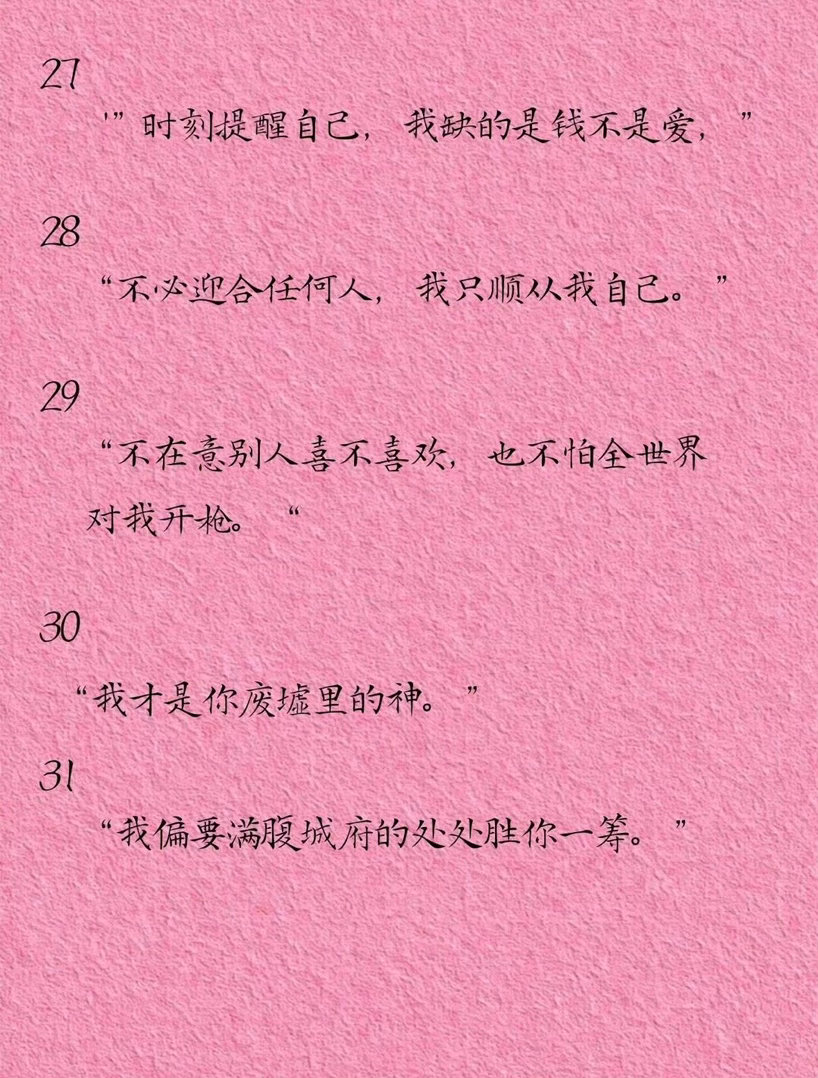 27
'”时刻提醒自己，我缺的是钱不是爱，”
28
“不必迎合任何人，我只顺从我自己。”
29
“不在意别人喜不喜欢，也不怕全世界
对我开枪。“
30
“我才是你废墟里的神。”
31
“我偏要满腹城府的处处胜你一筹。”